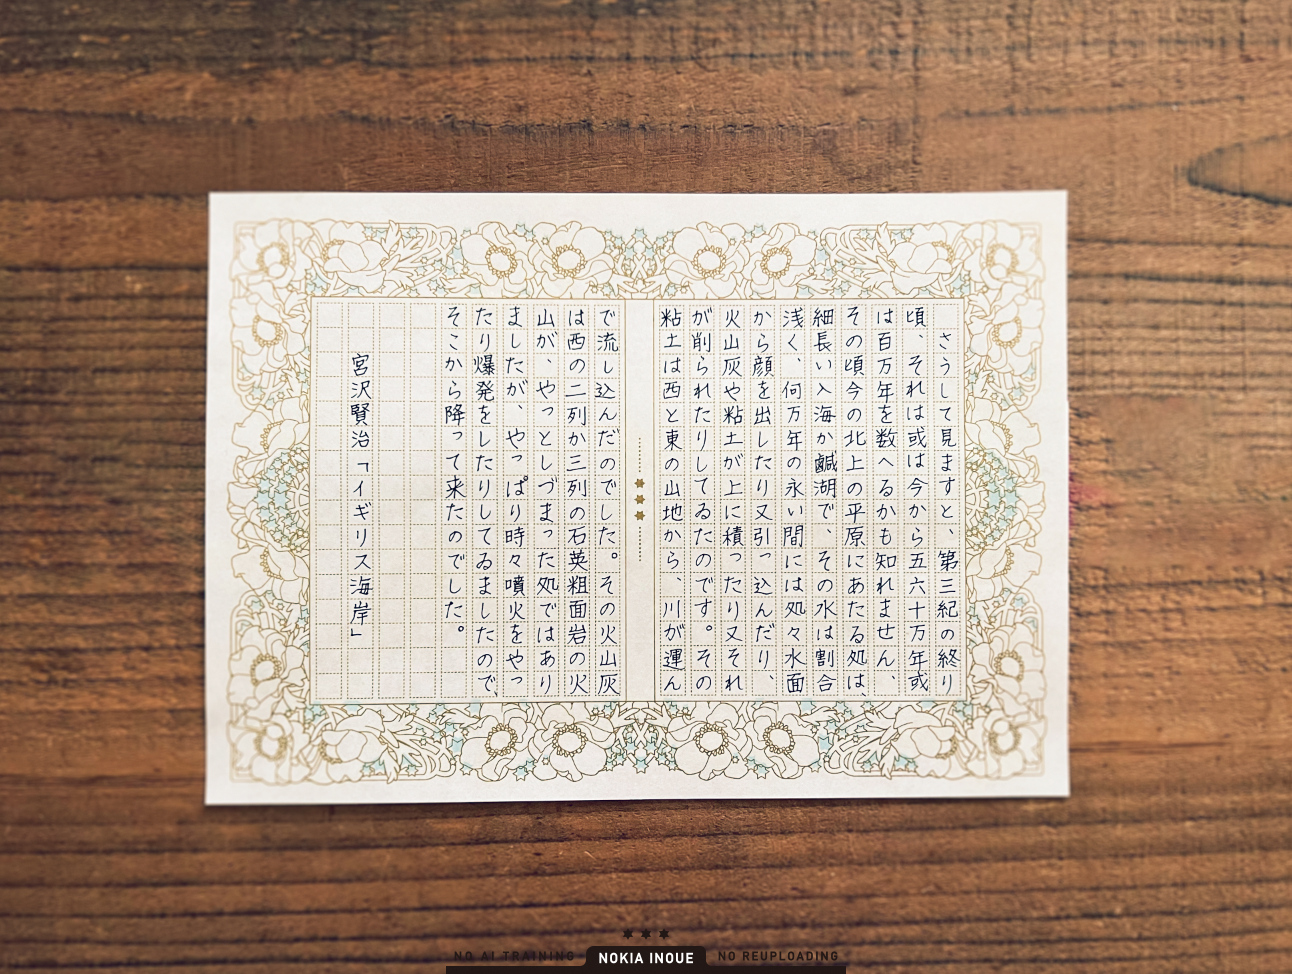 さうして見ますと、第三紀の終り
頃、それは或は今から五六十万年或
は百万年を数へるかも知れません、
その頃今の北上の平原にあたる処は、
細長い入海か鹹湖で、その水は割合
浅く、何万年の永い間には処々水面
から顔を出したり又引っ込んだり、
火山灰や粘土が上に積ったり又それ
が削られたりしてゐたのです。その
粘土は西と東の山地から、川が運ん
で流し込んだのでした。その火山灰
は西の二列か三列の石英粗面岩の火
山が、やっとしづまった処ではあり
ましたが、やっぱり時々噴火をやっ
たり爆発をしたりしてゐましたので、
そこから降って来たのでした。
宮沢賢治「イギリス海岸」
NO AI TRAINING NOKIA INOUE NO REUPLOADING